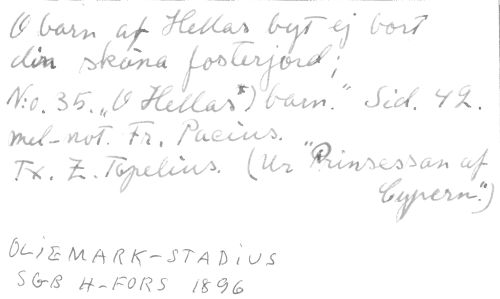 O barn af Hellas byt ej bort
din sköna fosterjord;
N:o. 35. „O Hellas*) barn." Sid. 42.
mel-not. Fr. Pacius.
Tx. Z. Topelius. (Ur "Prinsessan af
Cypern".)
OLIEMARK-STADIUS
SGB H-FORS 1896